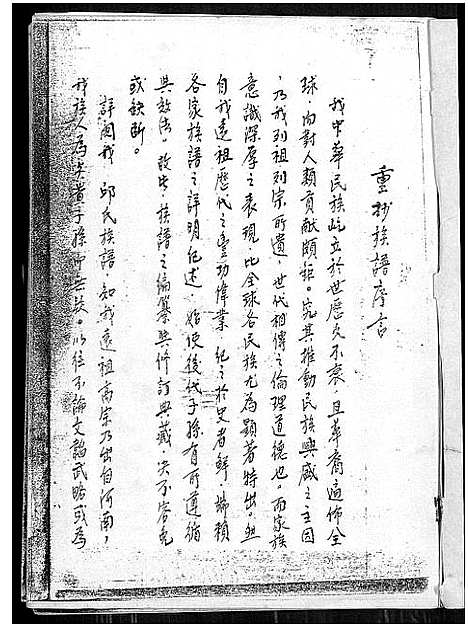 重抄族譜序言
我中華民族屹立於世歷久不衰，且華裔遍佈全
球，而對人類貢獻頗鉅。究其推動民族興盛之主因
，乃我列祖列宗所遺，世代相傳之倫理道德也。而家族
意識深厚之表現，比全球各民族尤為顯著特出。無
自我遠祖歷代之豐功偉業，紀之於史者鮮，端賴
各家族譜之詳明紀述，始使後代子孫有所遵循
與效法。故此，族譜之編纂與修訂典藏，決不容免
或缺斷。
詳閱我 邱氏族譜，知我遠祖高宗乃出自河南，
我族人為炎黃子孫而無疑。以往不論文韜武略或為